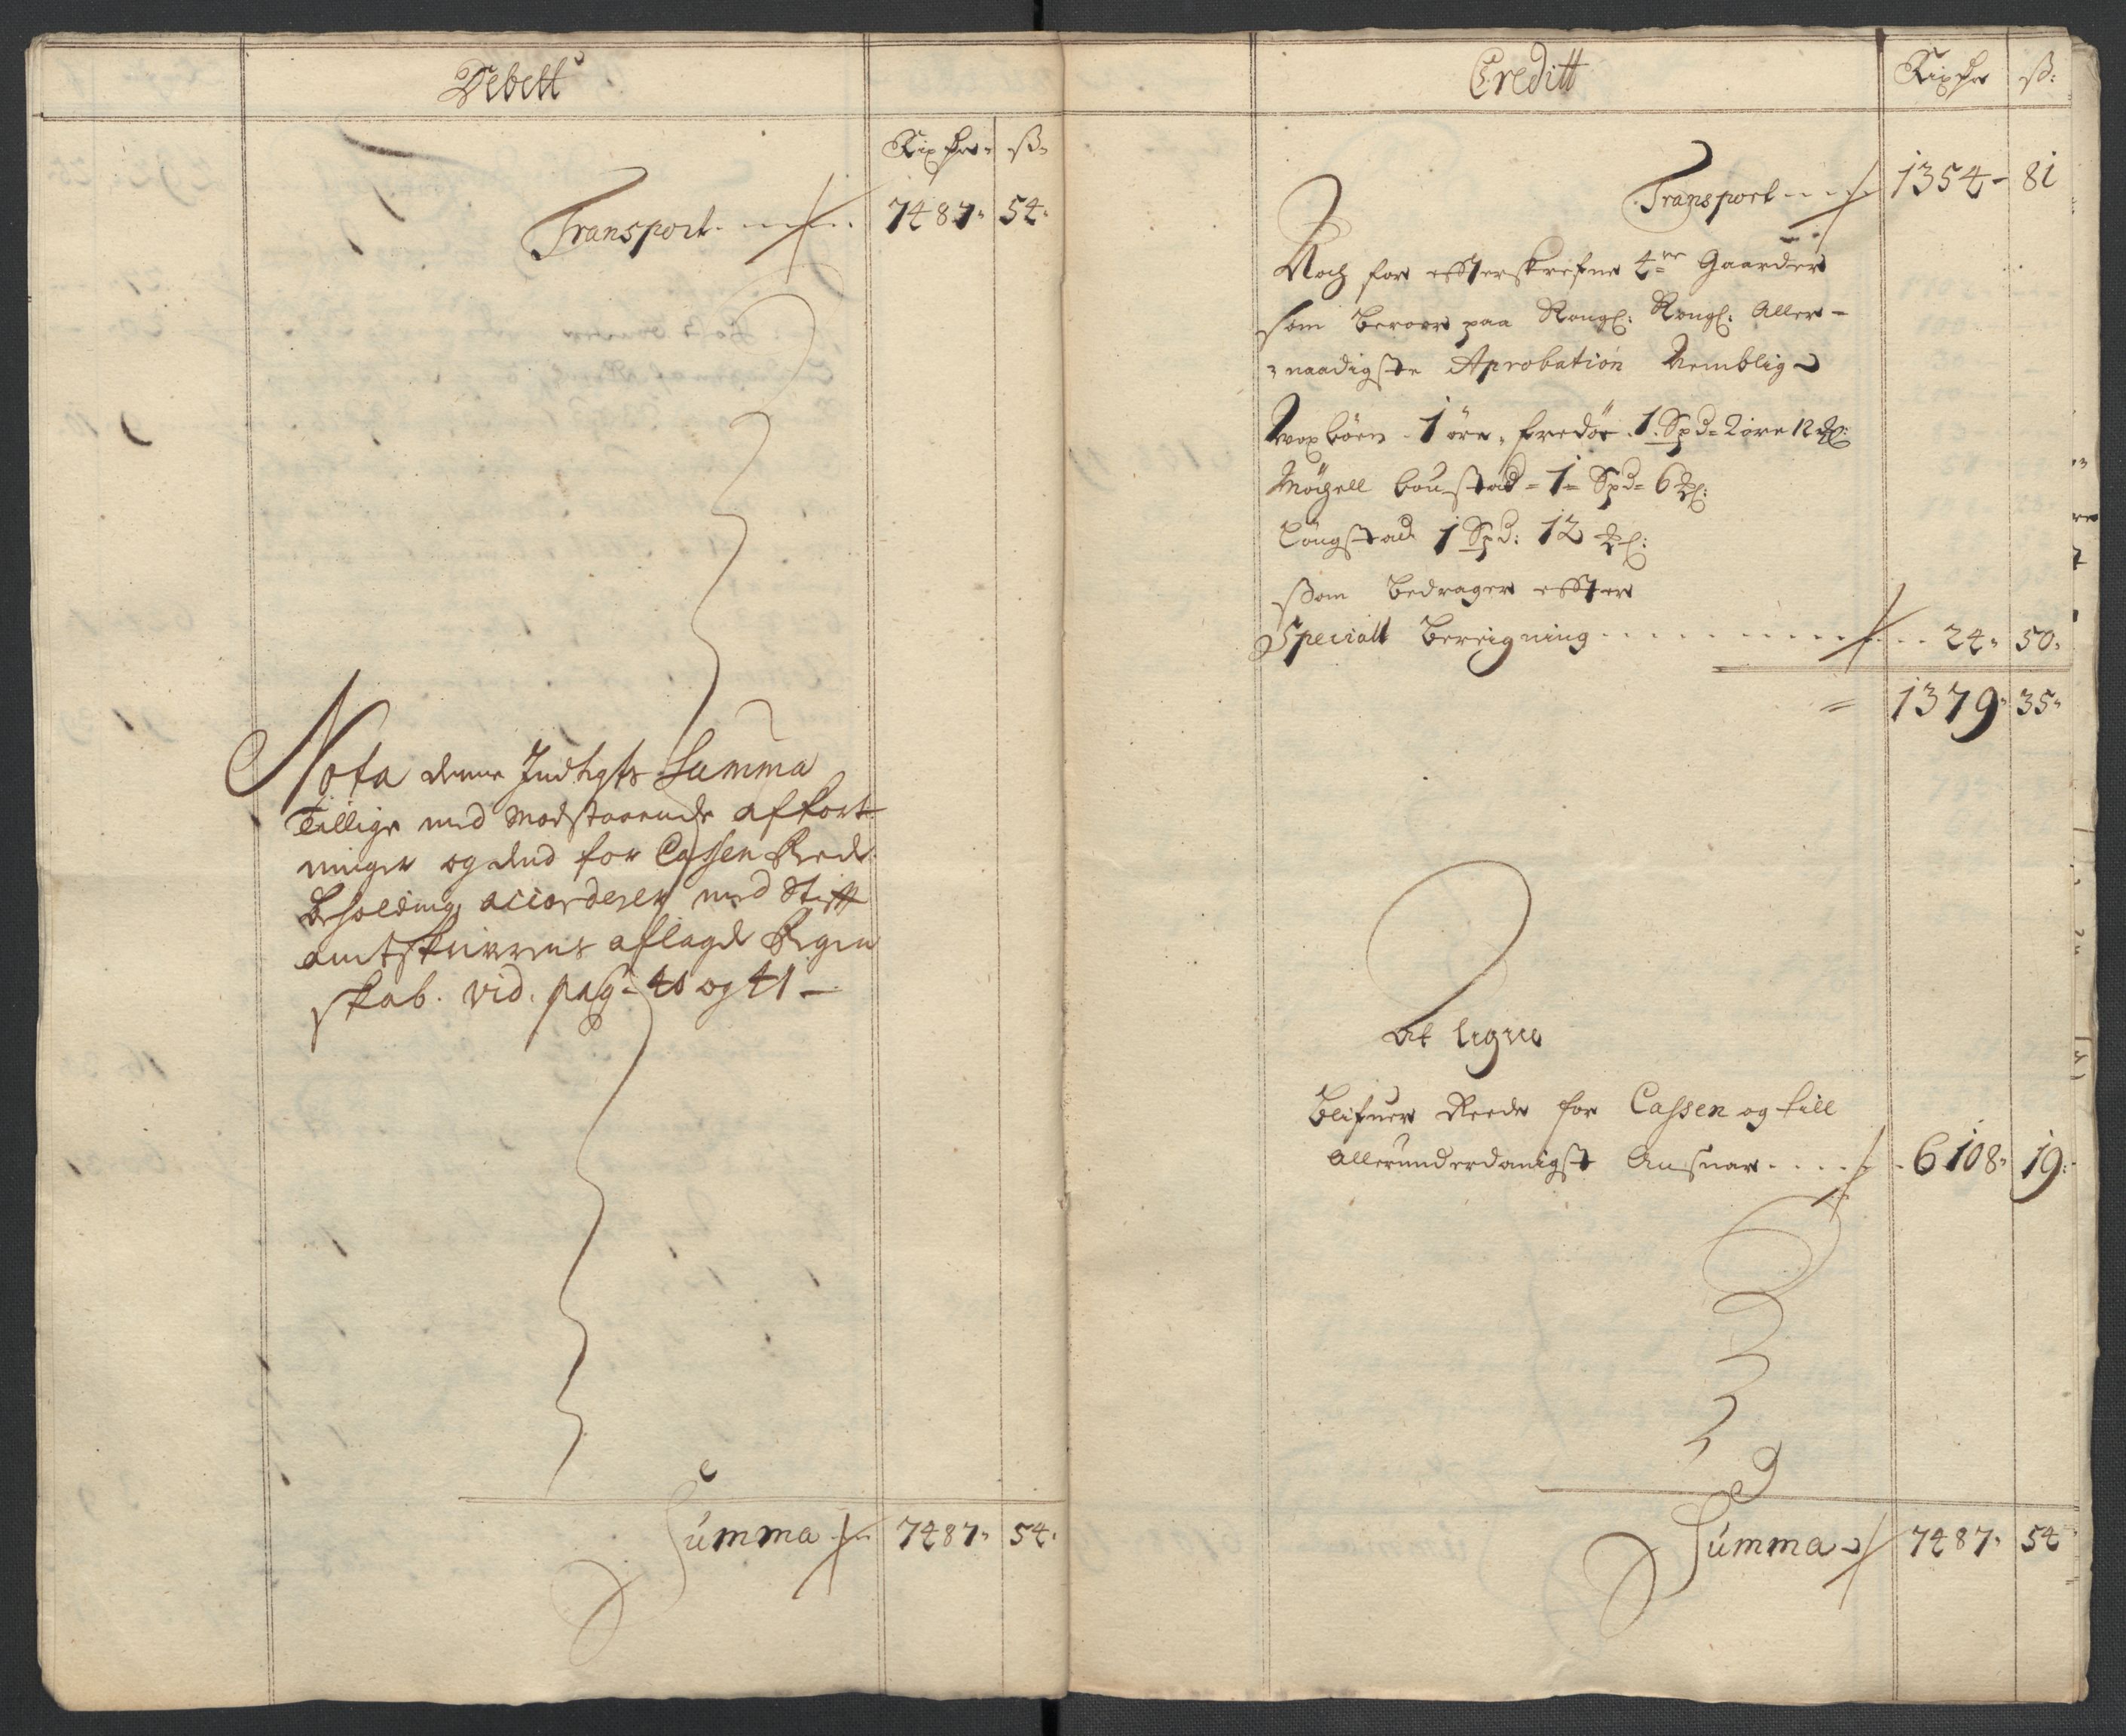 Debett
Rixdlr ß
Transport 7487 54
Nota denne Indtægts Summa
Tillige med Modstaaende afkort
ninger og det for Cassen Rede
beholding accorderer med Stifft
amtskrifverens aflagde Regen
skab. vid. pag. 40 og 41
Summa 7487 54
Creditt Rixdlr ß:
Transport 1354 81
Noch for effterskrefne 4re Gaarder
som beroer paa Kongl: Kongl: Aller-
naadigste Aprobation Nemblig
1 øre, 1 Spd 2 øre 12 
boustad 1 Spd 6
1 Spd: 12
Som bedrager effter
Speciall beregning 24 50
1379 35
At ligne
blifuer Reede for Cassen og till
Allerunderdanigst Ansuar 6108 19
Summa 7487 54